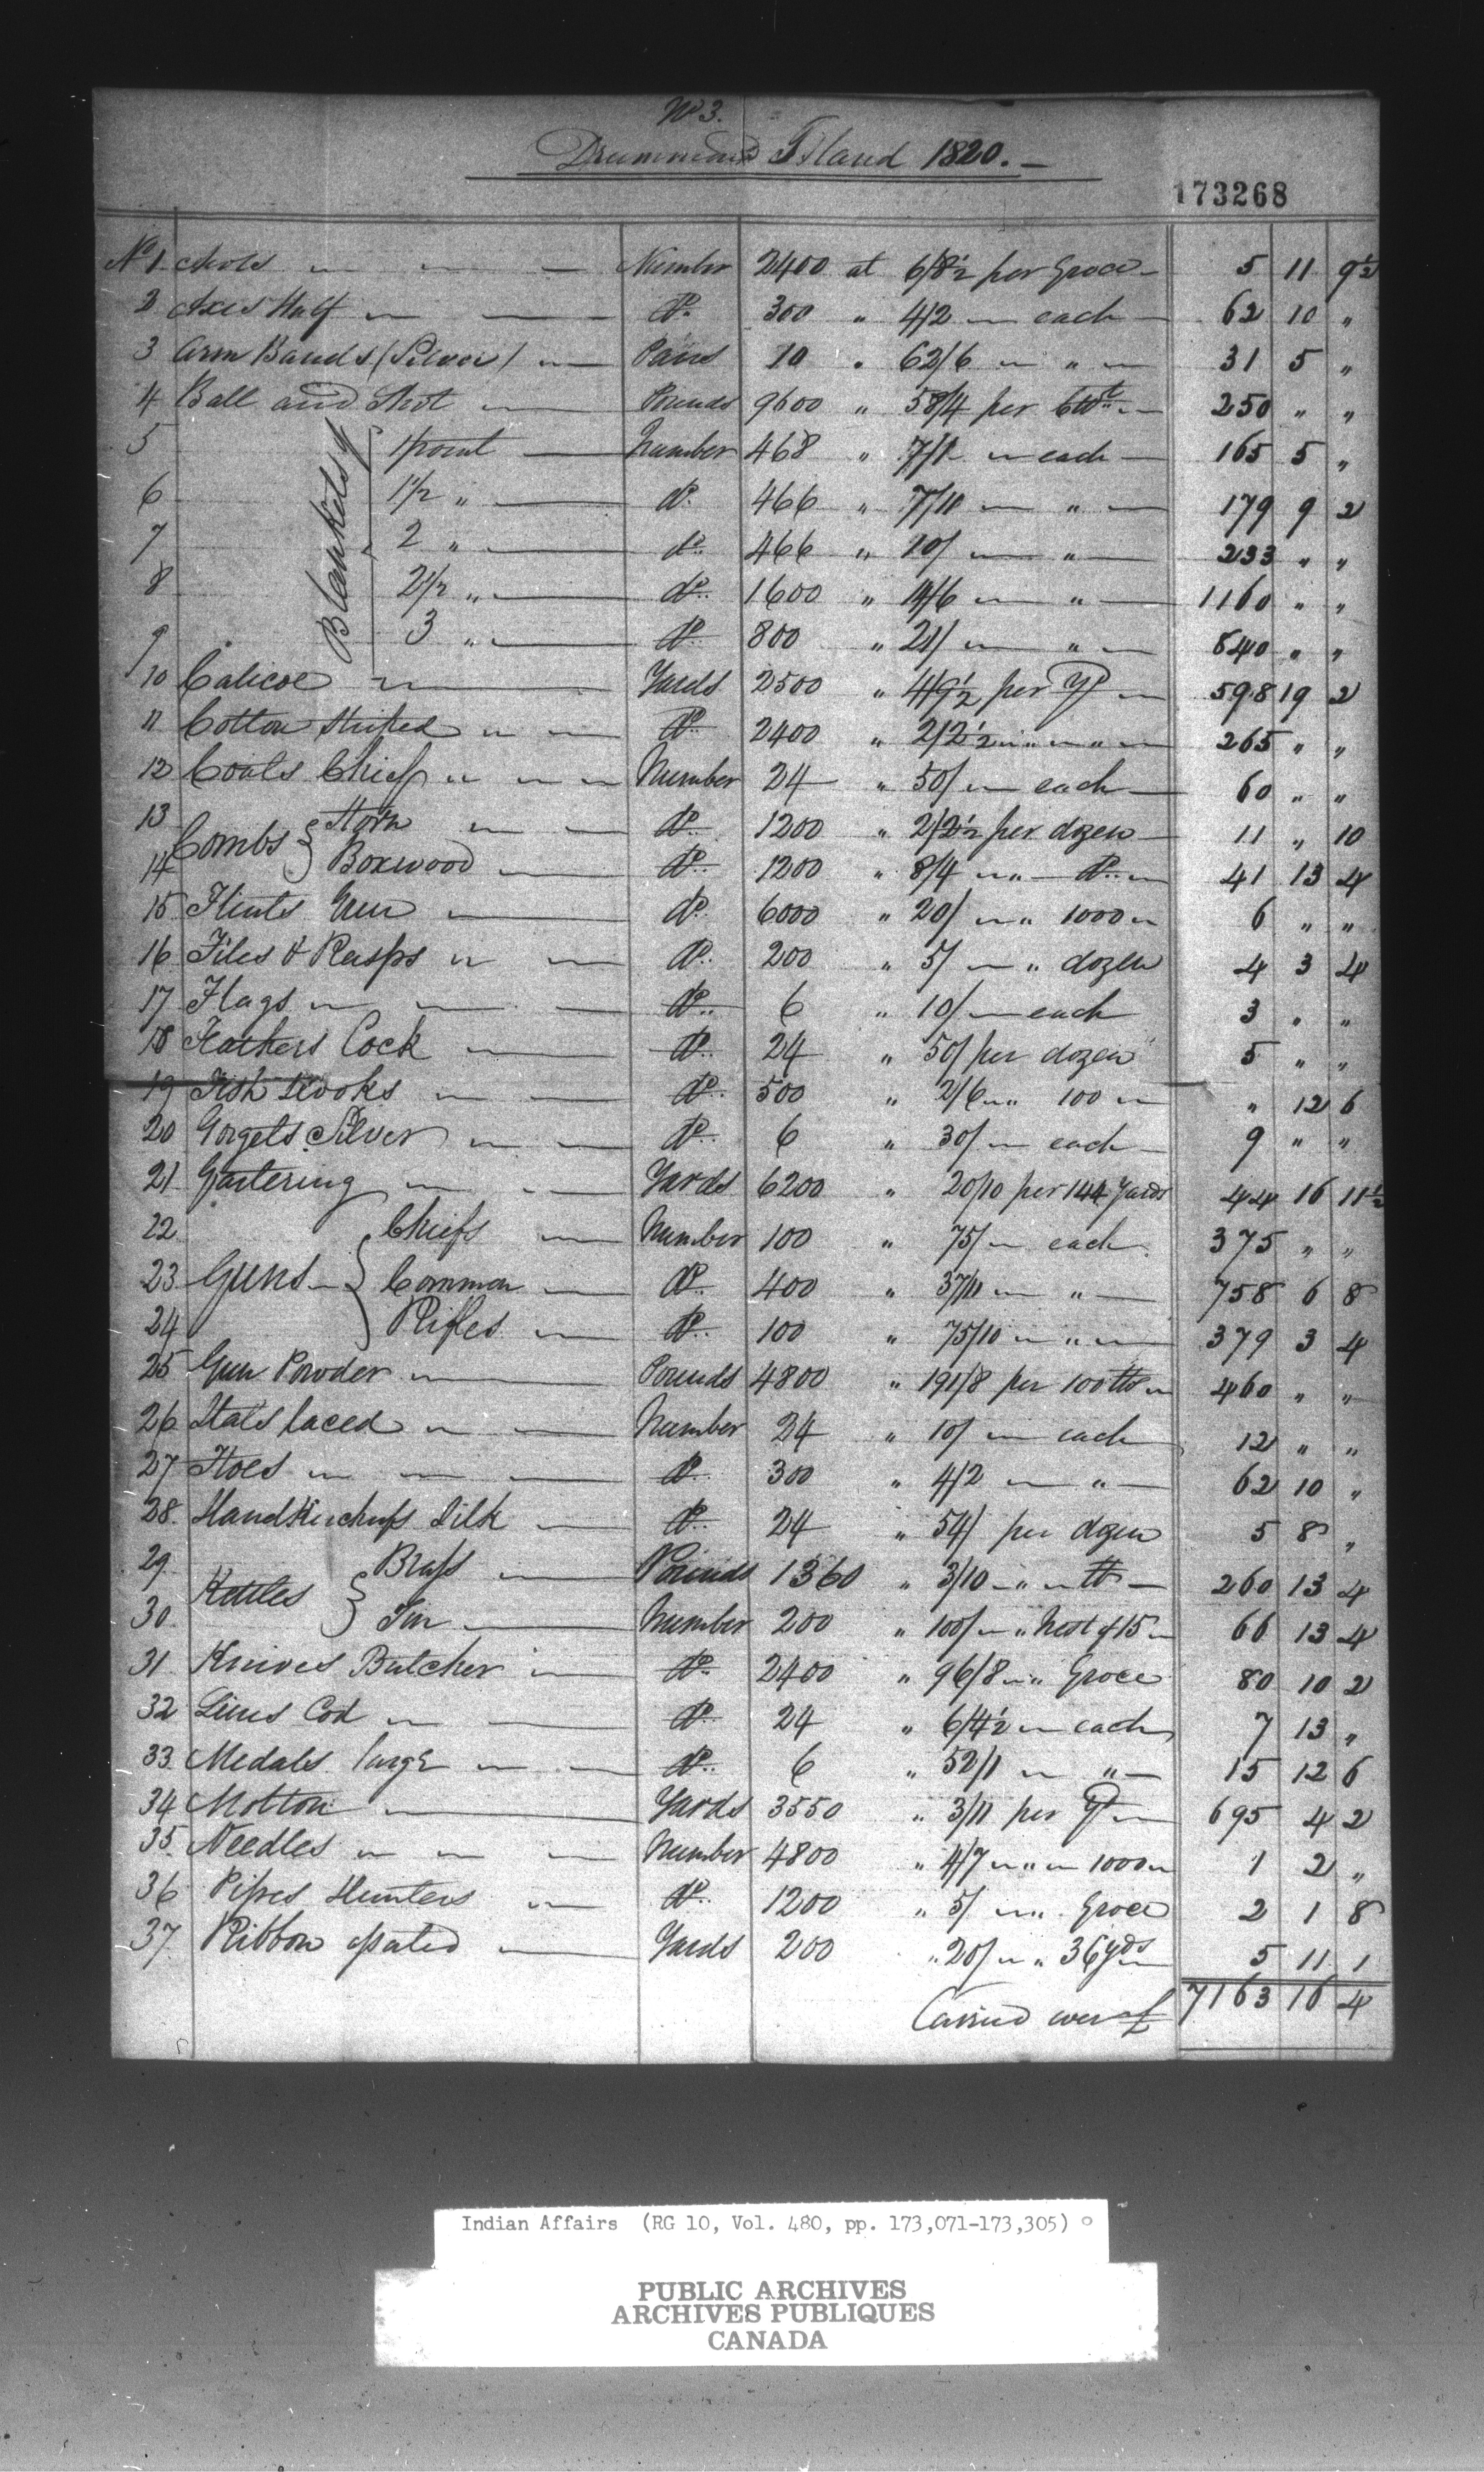 No 3.
Drummond Island 1820. —
173268
No 1 Awls — Number 2400 at 6/8½ per Groce — 5 11 9½
2 Axes Half — do. 300 " 4/2 — each — 62 10 "
3 Arm Bands (Silver) — Pairs 10 " 62/6 — " — 31 5 "
4 Ball and Shot — Pounds 9600 " 58/4 per Cwt — 250 " "
Blankets of
5 1 point — Number 468 " 7/1 — each — 165 5 "
6 1½ " — do. 466 " 7/10 — " — 179 9 2
7 2 " — do. 466 " 10/ — " — 233 " "
8 2½ " — do. 1600 " 14/6 — " — 1160 " "
9 3 " — do. 800 " 21/ — " — 840 " "
10 Calicoe — Yards 2500 " 4/9½ per Yd — 598 19 2
11 Cotton Striped — do. 2400 " 2/2½ " — " — 265 " "
12 Coats Chiefs — Number 24 " 50/ — each — 60 " "
13 Combs { Horn — do. 1200 " 2/2½ per dozen — 11 " 10
14 Boxwood — do. 1200 " 8/4 — " — do. — 41 13 4
15 Flints Gun — do. 6000 " 20/ — " 1000 — 6 " "
16 Files & Rasps — do. 200 " 5/ — " dozen 4 3 4
17 Flags — do. 6 " 10/ — each 3 " "
18 Feathers Cock — do. 24 " 50/ per dozen 5 " "
19 Fish Hooks — do. 500 " 2/6 — " 100 — " 12 6
20 Gorgets Silver — do. 6 " 30/ — each — 9 " "
21 Gartering — Yards 6200 " 20/10 per 144 Yards 44 16 11½
22 Chiefs — Number 100 " 75/ — each 375 " "
23 Guns — { Common — do. 400 " 37/11 — " — 758 6 8
24 Rifles — do. 100 " 75/10 — " — 379 3 4
25 Gun Powder — Pounds 4800 " 191/8 per 100 lb — 460 " "
26 Hats laced — Number 24 " 10/ — each 12 " "
27 Hoes — do. 300 " 4/2 — " — 62 10 "
28. Handkerchiefs Silk — do. 24 " 54/ per dozen 5 8 "
29. Kettles { Brass — Pounds 1360 " 3/10 — " — lb — 260 13 4
30. Tin — Number 200 " 100/ — " Nest of 15 — 66 13 4
31. Knives Butcher — do. 2400 " 96/8 — " Groce 80 10 2
32 Lines Cod — do. 24 " 6/4½ — each 7 13 "
33. Medals large — do. 6 " 52/1 — " — 15 12 6
34 Molton — Yards 3550 " 3/11 per Yd — 695 4 2
35. Needles — Number 4800 " 4/7 — " — 1000 — 1 2 "
36 Pipes Hunters — do. 1200 " 5/ — " Groce 2 1 8
37. Ribbon assorted — Yards 200 " 20/ — " 36 yds 5 11 1
Carried over £ 7163 16 4
Indian Affairs (RG 10, Vol. 480, pp. 173,071-173,305)
PUBLIC ARCHIVES
ARCHIVES PUBLIQUES
CANADA